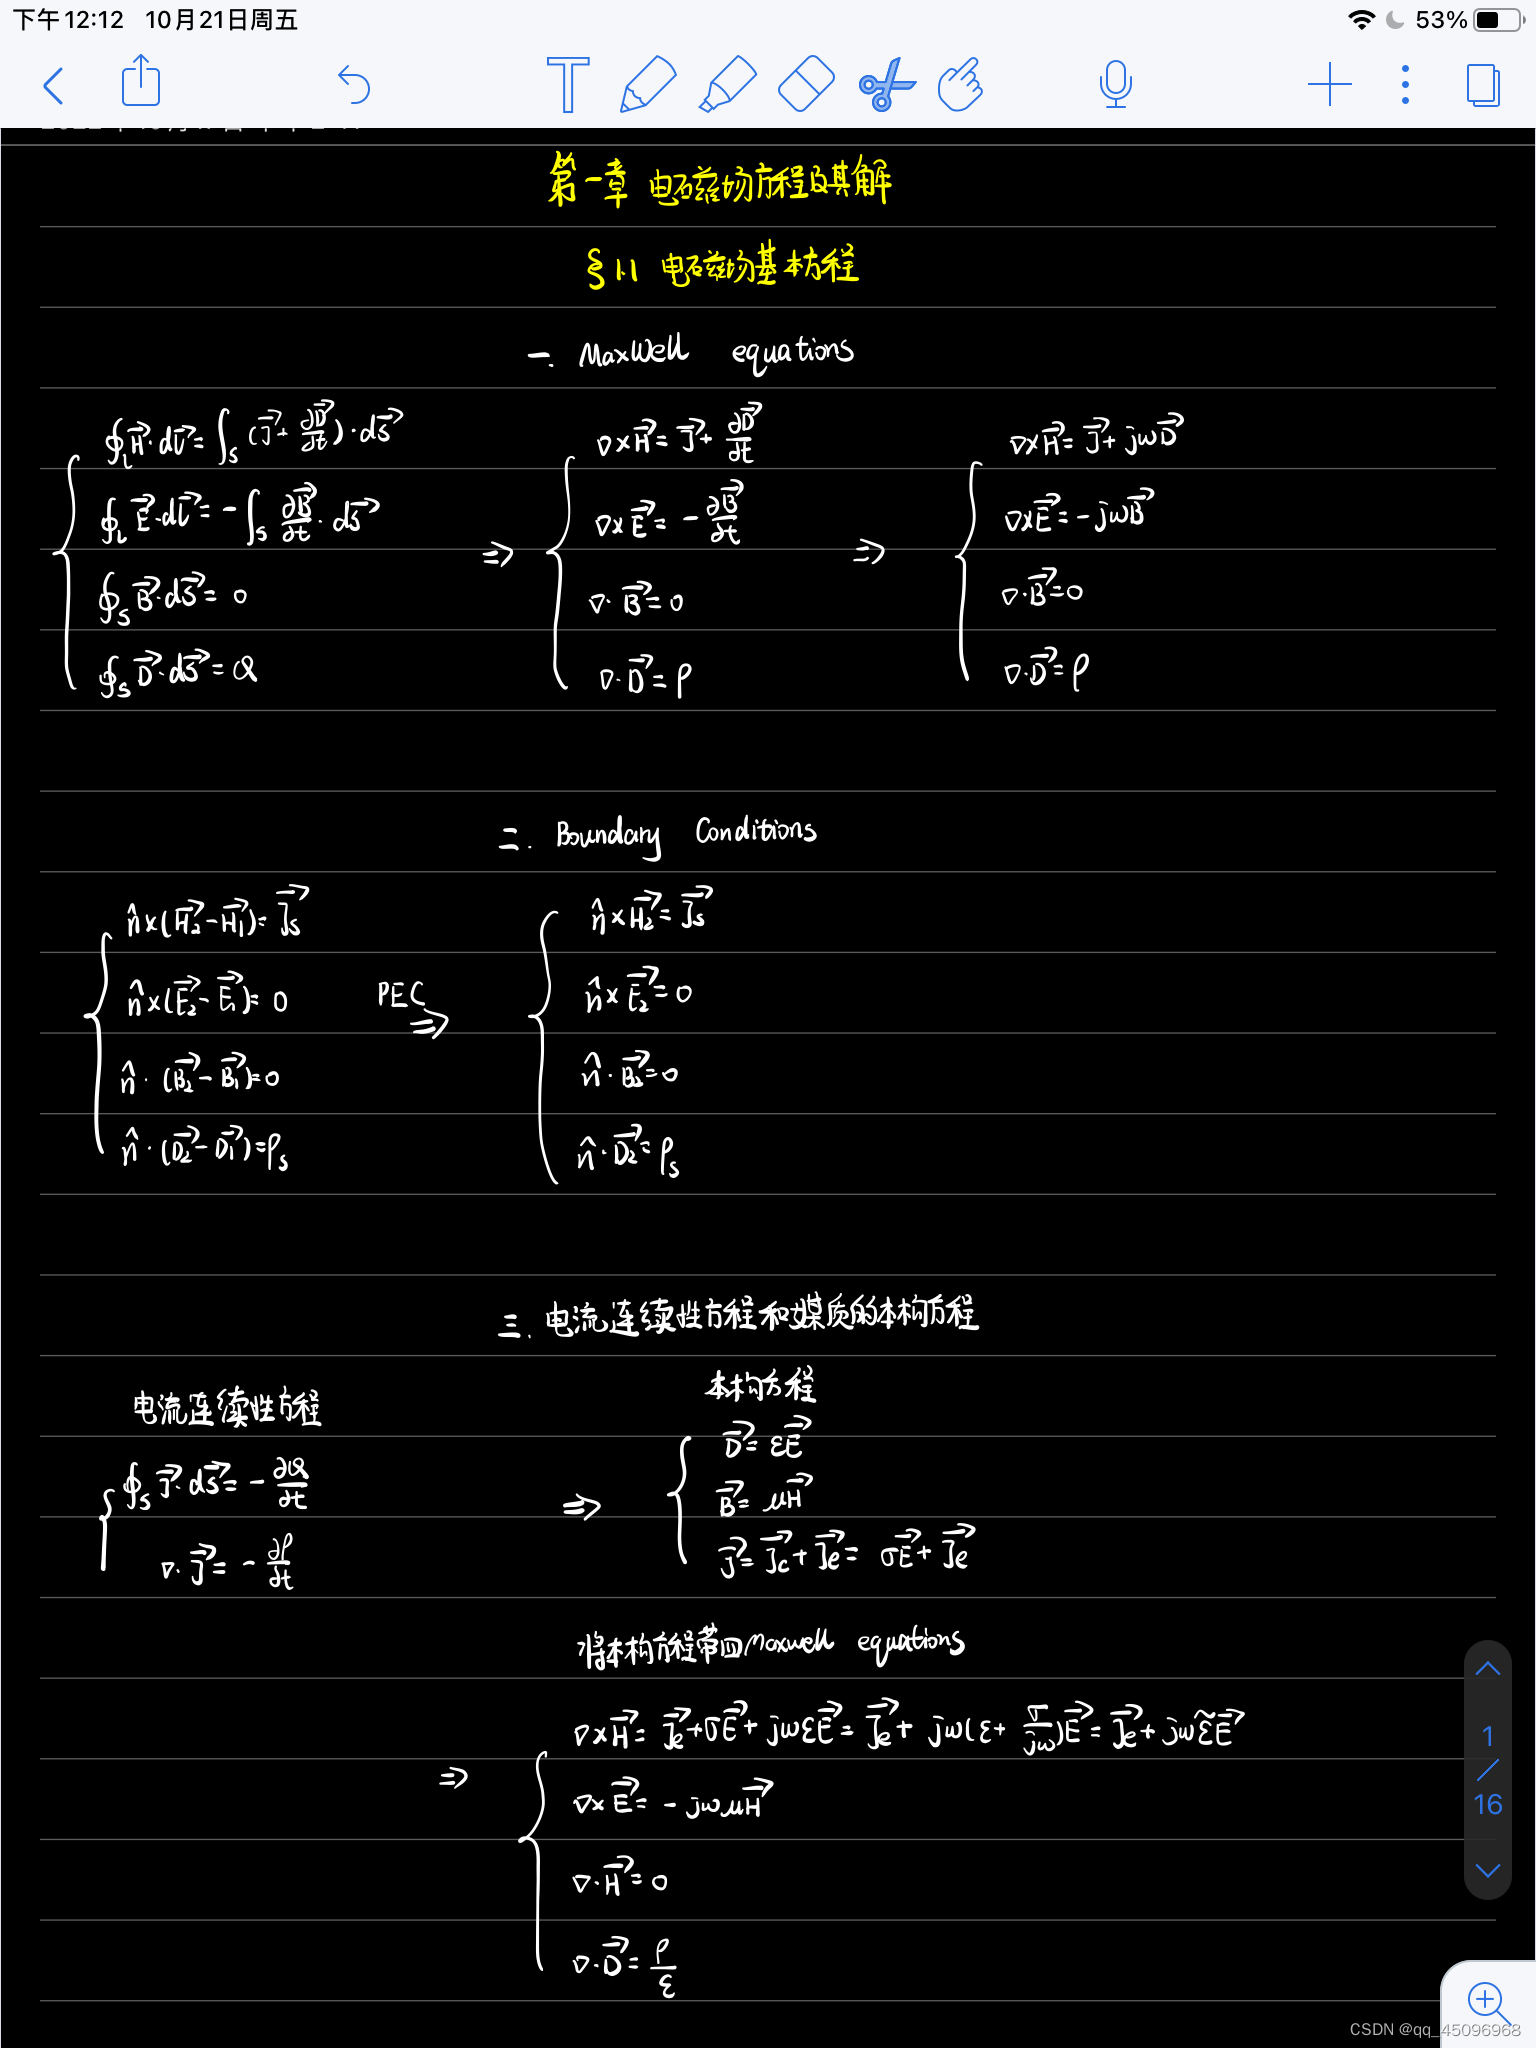 下午12:12 10月21日周五 53%
第一章 电磁场方程及其解
§1.1 电磁场基本方程
一. MaxWell equations
∮_l H⃗·dl⃗ = ∫_S (J⃗ + ∂D⃗/∂t)·dS⃗
∮_l E⃗·dl⃗ = -∫_S ∂B⃗/∂t · dS⃗
∮_S B⃗·dS⃗ = 0
∮_S D⃗·dS⃗ = Q
⇒
∇×H⃗ = J⃗ + ∂D⃗/∂t
∇×E⃗ = -∂B⃗/∂t
∇·B⃗ = 0
∇·D⃗ = ρ
⇒
∇×H⃗ = J⃗ + jωD⃗
∇×E⃗ = -jωB⃗
∇·B⃗ = 0
∇·D⃗ = ρ
二. Boundary Conditions
n̂×(H⃗₂-H⃗₁) = J⃗s
n̂×(E⃗₂-E⃗₁) = 0
n̂·(B⃗₂-B⃗₁) = 0
n̂·(D⃗₂-D⃗₁) = ρs
PEC ⇒
n̂×H⃗₂ = J⃗s
n̂×E⃗₂ = 0
n̂·B⃗₂ = 0
n̂·D⃗₂ = ρs
三. 电流连续性方程和媒质的本构方程
电流连续性方程
∮_S J⃗·dS⃗ = -∂Q/∂t
∇·J⃗ = -∂ρ/∂t
⇒
本构方程
D⃗ = εE⃗
B⃗ = μH⃗
J⃗ = J⃗c + J⃗e = σE⃗ + J⃗e
将本构方程带回Maxwell equations
⇒
∇×H⃗ = J⃗e + σE⃗ + jωεE⃗ = J⃗e + jω(ε + σ/jω)E⃗ = J⃗e + jωε̃E⃗
∇×E⃗ = -jωμH⃗
∇·H⃗ = 0
∇·D⃗ = ρ/ε
1
/
16
CSDN @qq_45096968